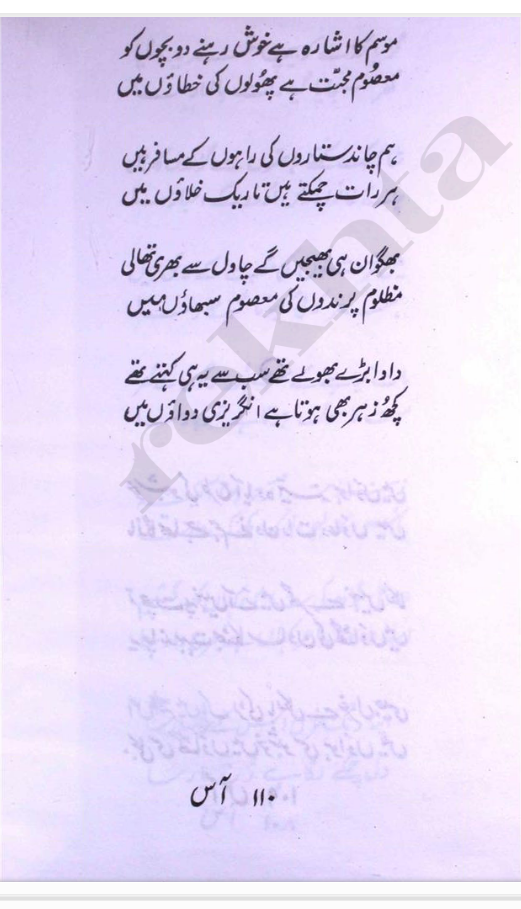 موسم کا اشارہ ہے خوش رہنے دو بچوں کو
معصُوم محبّت ہے پھُولوں کی خطاؤں میں
ہم چاند ستاروں کی راہوں کے مسافر ہیں
ہر رات چمکتے ہیں تاریک خلاؤں میں
بھگوان ہی بھیجیں گے چاول سے بھری تھالی
مظلوم پرندوں کی معصوم سبھاؤں میں
دادا بڑے بھولے تھے سب سے یہی کہتے تھے
کچھُ زہر بھی ہوتا ہے انگریزی دواؤں میں
rekhta
۱۱۰ آس